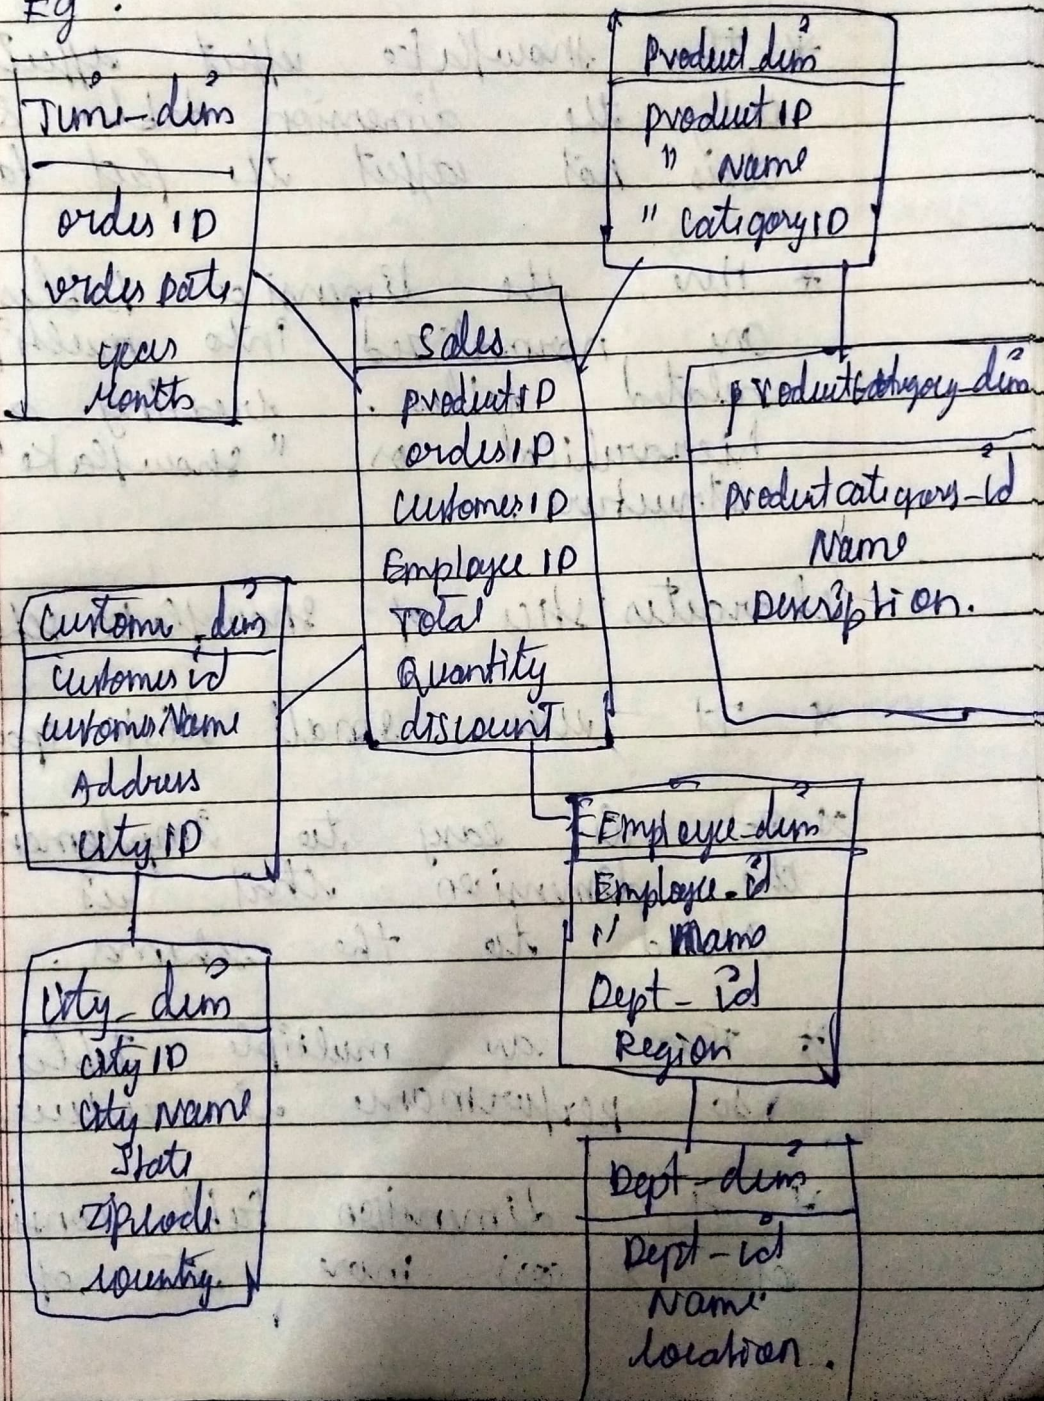 Eg:
Time-dim
order ID
order Date
year
Month
Product_dim
product ID
" Name
" Category ID
Sales
product ID
order ID
Customer ID
Employee ID
Total
Quantity
discount
productcategory-dim
productcategory-id
Name
Description.
Custome_dim
Customer id
CustomerName
Address
City ID
City_dim
City ID
City Name
State
Zipcode
Country
Employee-dim
Employee-id
" Name
Dept-id
Region
Dept-dim
Dept-id
Name
location.